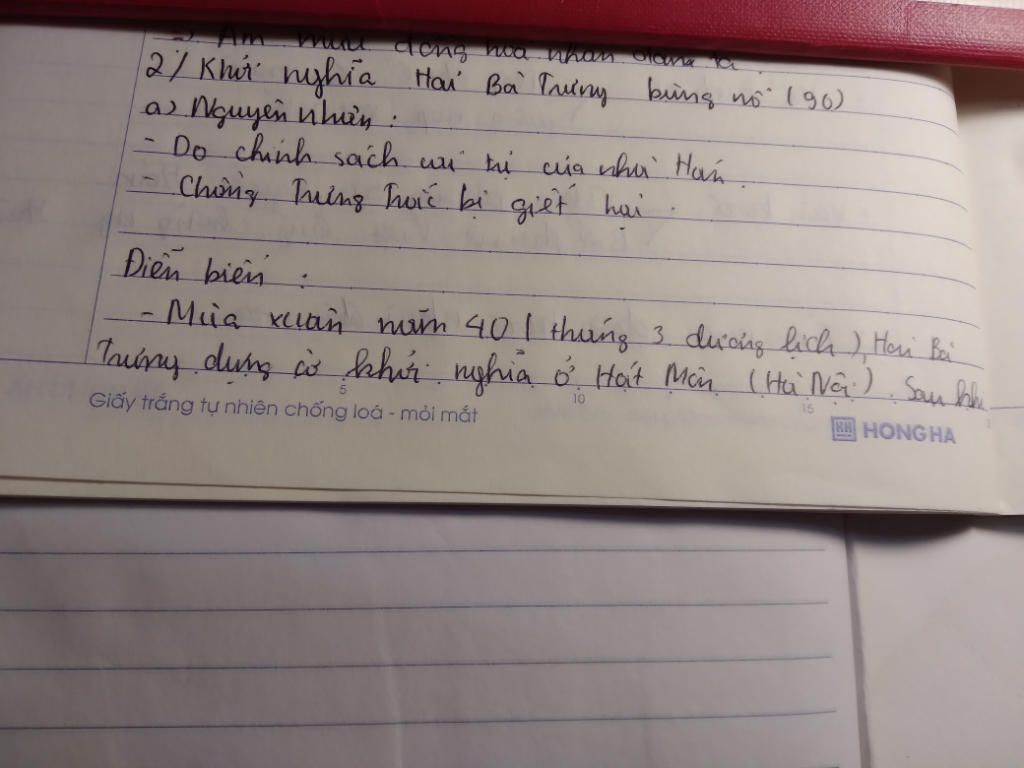 -> Âm mưu đồng hoá nhân dân ta.
2/ Khởi nghĩa Hai Bà Trưng bùng nổ (90)
a) Nguyên nhân:
- Do chính sách cai trị của nhà Hán.
- Chồng Trưng Trắc bị giết hại.
Diễn biến:
- Mùa xuân năm 40 (tháng 3 dương lịch), Hai Bà
Trưng dựng cờ khởi nghĩa ở Hát Môn (Hà Nội). Sau khi
5 10 15
Giấy trắng tự nhiên chống loá - mỏi mắt
HH HONG HA